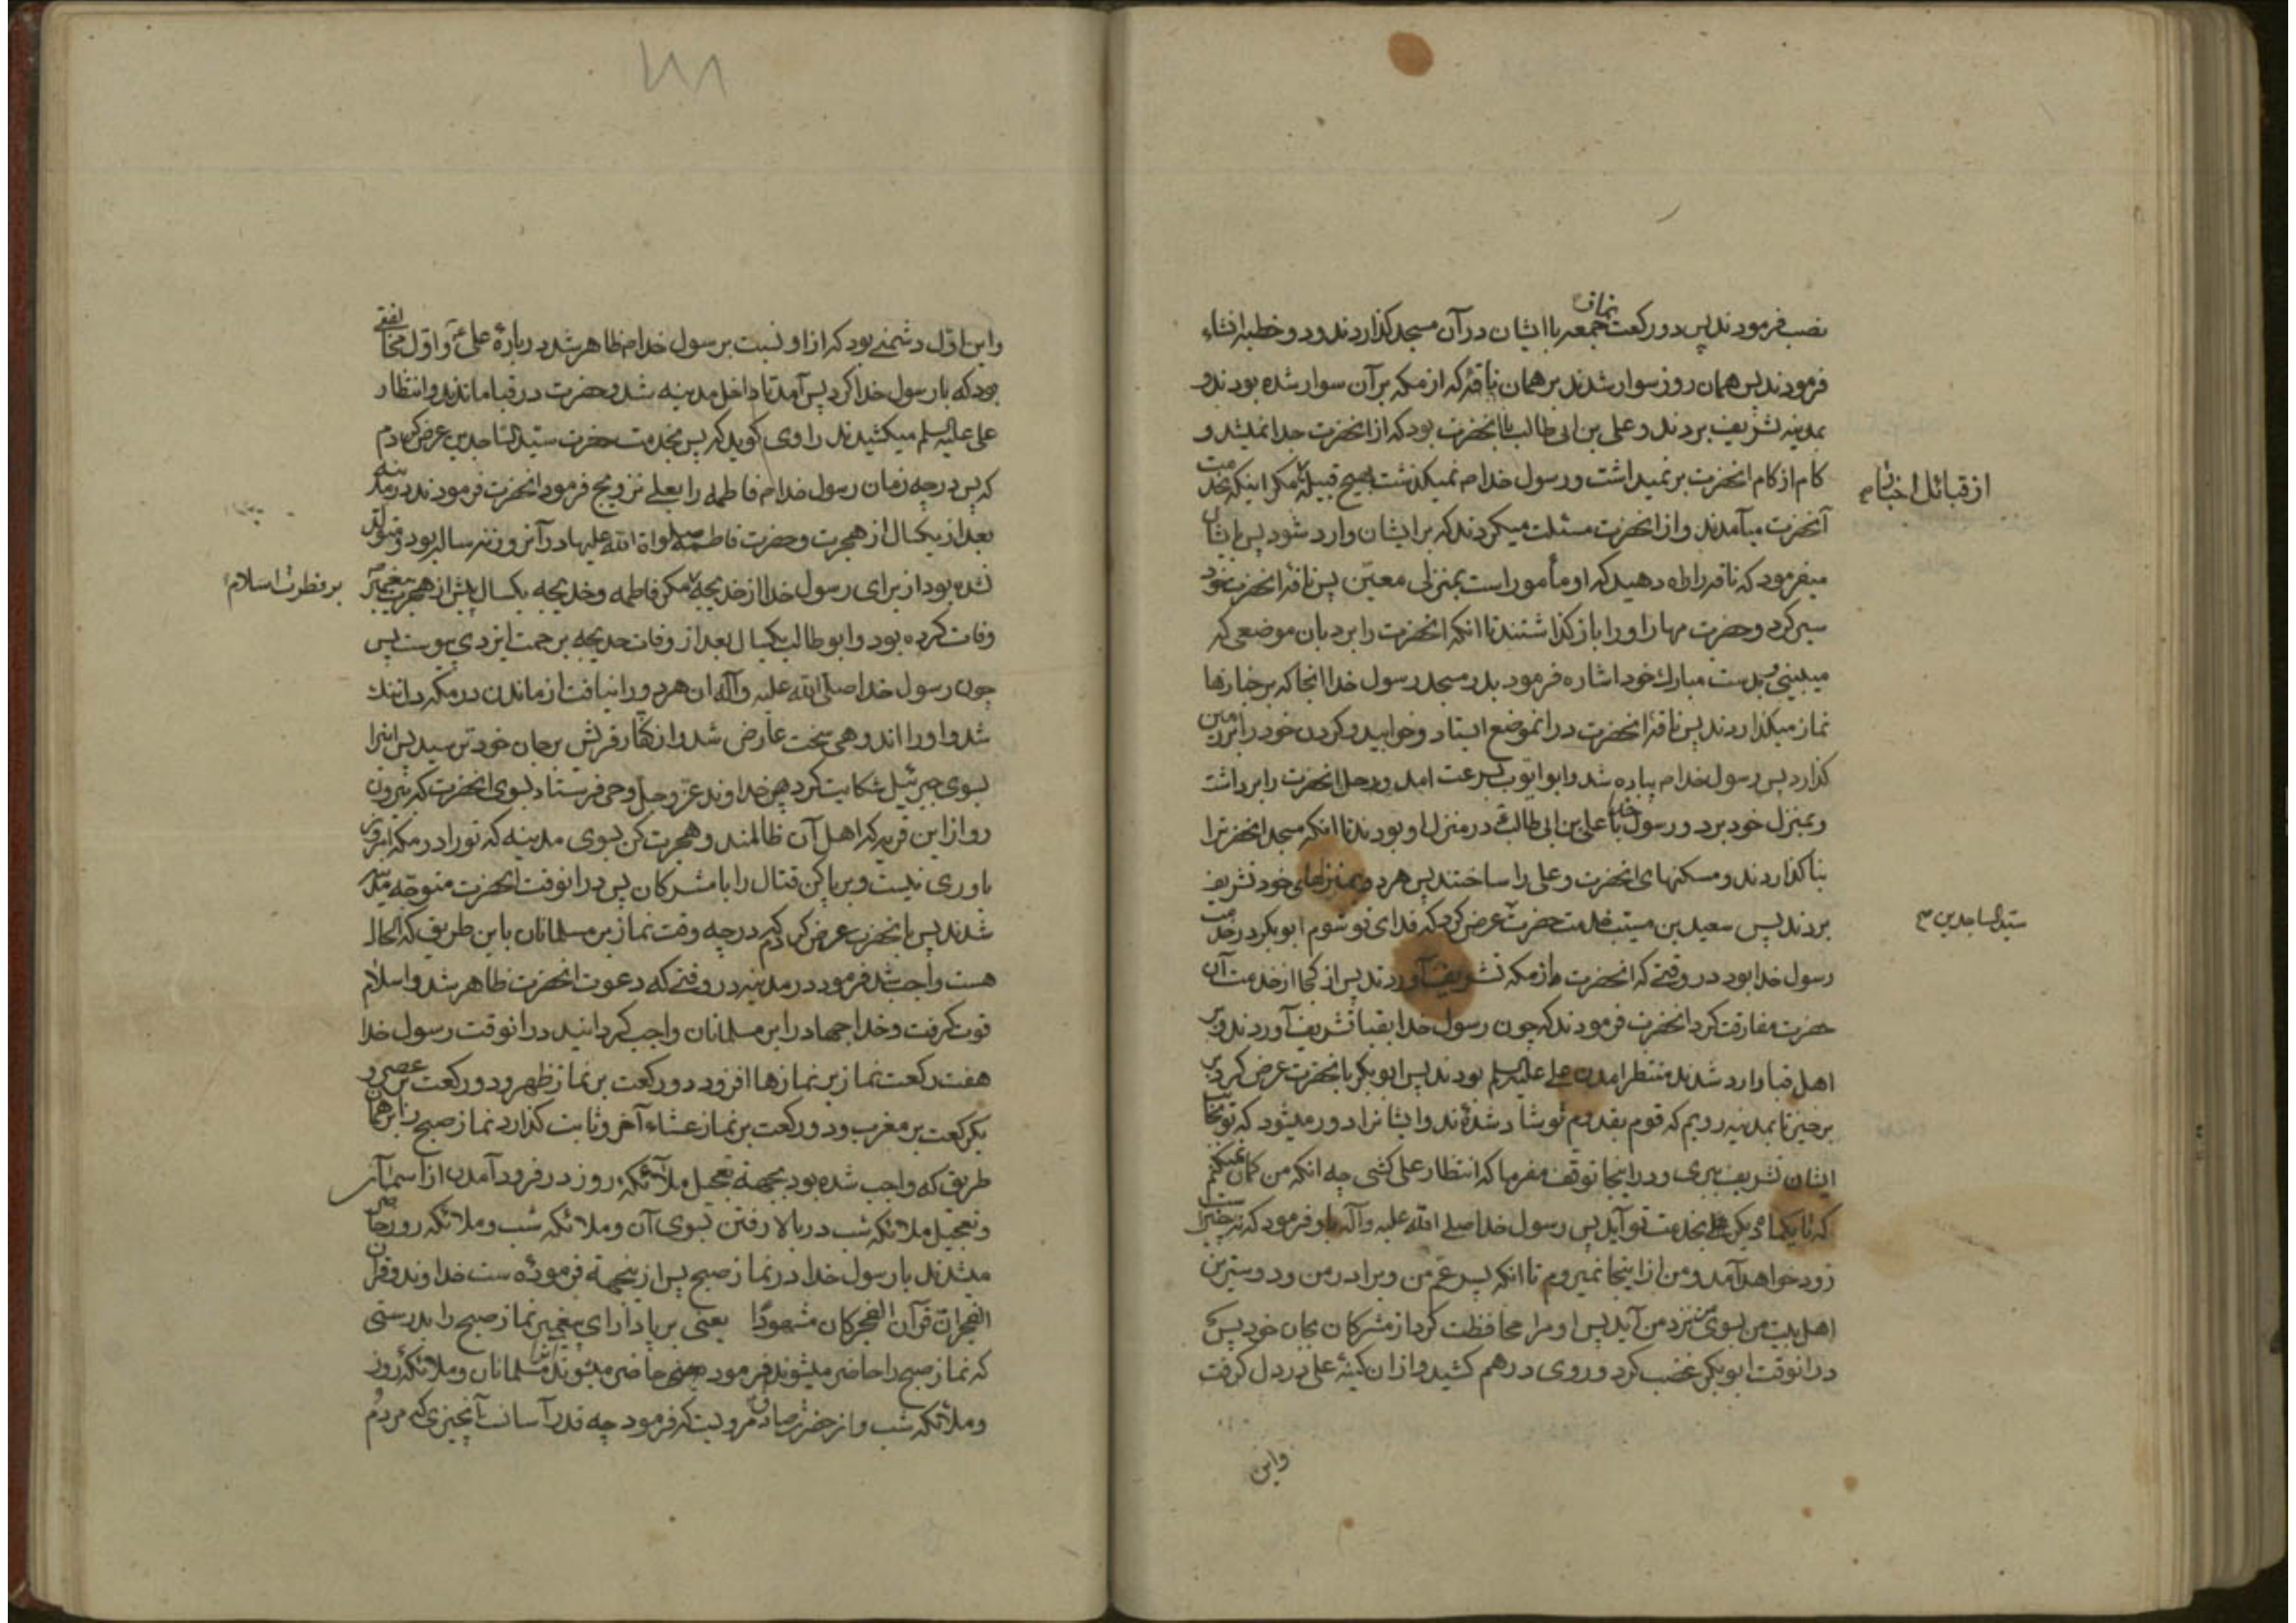 نصب فرمودند پس دو رکعت نماز جمعه با ایشان در آن مسجد کذاردند و دو خطبه انشاء
فرمودند پس همان روز سوار شدند بر همان ناقهٔ که از مکه بر آن سوار شده بودند و
بمدینه تشریف بردند و علی بن ابی طالب با آنحضرت بود که از انحضرت جدا نمیشد و
کام از کام انحضرت بر نمیداشت و رسول خدا م نمیکذشت بهیچ قبیلهٔ مکر اینکه بخدمت
از قبائل اخبار م
آنحضرت میآمدند و از انحضرت مسئلت میکردند که بر ایشان وارد شود پس بایشان
میفرمود که ناقه را راه دهید که او مأمور است بمنزلی معین پس ناقهٔ انحضرت خود
سیر کرد و حضرت مهار او را باز کذاشتند تا انکه انحضرت را برد بان موضعی که
میبینی و بدست مبارک خود اشاره فرمود بدر مسجد رسول خدا انجا که بر جنازها
نماز میکذاردند پس ناقهٔ انحضرت در انموضع ایستاد و خوابید و کردن خود را بر زمین
کذارد پس رسول خدا م پیاده شد و ابو ایوب بسرعت امد و رحل انحضرت را برداشت
و بمنزل خود برد و رسول خدا با علی بن ابی طالب در منزل او بودند تا انکه مسجد انحضرترا
بنا کذاردند و مسکنهای انحضرت و علی را ساختند پس هر دو بمنزلهای خود تشریف
بردند پس سعید بن مسیب خدمت حضرت عرض کرد که فدای تو شوم ابو بکر در خدمت
سید الساجدین ع
رسول خدا بود در وقتی که انحضرت از مکه تشریف آوردند پس از کجا از خدمت آن
حضرت مفارقت کرد انحضرت فرمودند که چون رسول خدا بقبا تشریف آوردند و بر
اهل قبا وارد شدند منتظر امدن علی علیه السلم بودند پس ابو بکر بانحضرت عرض کرد
برخیز تا بمدینه رویم که قوم بقدوم تو شاد شده‌ند و ایشانرا دور میشود که تو بخانه
ایشان تشریف بری و در اینجا توقف مفرما که انتظار علی کشی چه انکه من کمان نمیکنم
که تا یکماه دیکر علی بخدمت تو آید پس رسول خدا صلی الله علیه و آله باو فرمود که
زود خواهد آمد و من از اینجا نمیروم تا انکه پسر عم من و برادر من و دوسترین
اهل بیت من بسوی من نزد من آید پس او مرا محافظت کرد از مشرکان بجان خود پس
در انوقت ابو بکر غضب کرد و روی در هم کشید و از ان کینهٔ علی در دل کرفت
و این
۱۸۸
و این اول دشمنی بود که از او نسبت برسول خدا م ظاهر شد در بارهٔ علی و اول مخالفتی
بود که با رسول خدا کرد پس آمد تا داخل مدینه شد و حضرت در قبا ماندند و انتظار
علی علیه السلم میکشیدند راوی کوید که پس بخدمت حضرت سید الساجدین عرض کردم
که پس در چه زمان رسول خدا م فاطمه را بعلی تزویج فرمود انحضرت فرمودند در مدینه
بعد از یکسال از هجرت و حضرت فاطمه صلواة الله علیها در آنروز نه ساله بود و متولد
نشده بود از برای رسول خدا از خدیجه مکر فاطمه و خدیجه یکسال پیش از هجرت پیغمبر
بر فطرت اسلام
وفات کرده بود و ابو طالب یکسال بعد از وفات خدیجه برحمت ایزدی پیوست پس
چون رسول خدا صلی الله علیه و آله ان هر دو را نیافت از ماندن در مکه دلتنک
شد و او را اندوهی سخت عارض شد و از کفار قریش بر جان خود ترسید پس انرا
بسوی جبرئیل شکایت کرد پس خداوند عز و جل وحی فرستاد بسوی انحضرت که بیرون
رو از این قریه که اهل آن ظالمند و هجرت کن بسوی مدینه که تو را در مکه امروز
یاوری نیست و بر پا کن قتال را با مشرکان پس در انوقت انحضرت متوجه مدینه
شدند پس بانحضرت عرض کردم که در چه وقت نماز بر مسلمانان باین طریق که الحال
هست واجب شد فرمود در مدینه در وقتی که دعوت انحضرت ظاهر شد و اسلام
قوت کرفت و خدا جهاد را بر مسلمانان واجب کردانید در انوقت رسول خدا
هفت رکعت نماز بر نمازها افزود دو رکعت بر نماز ظهر و دو رکعت بر عصر و
یکرکعت بر مغرب و دو رکعت بر نماز عشاء آخر و ثابت کذارد نماز صبح را بر همان
طریق که واجب شده بود بجهة تعجیل ملائکه روز در فرود آمدن از آسمان
و تعجیل ملائکه شب در بالا رفتن بسوی آن و ملائکه شب و ملائکه روز حاضر
میشدند با رسول خدا در نماز صبح پس از ینجهة فرموده ست خداوند و قرآن
الفجر ان قرآن الفجر کان مشهودا یعنی بر پا دار ای پیغمبر نماز صبح را بدرستی
که نماز صبح را حاضر میشوند فرمود یعنی حاضر میشوند مسلمانان و ملائکهٔ روز
و ملائکه شب و از حضرت صادق مرویست که فرمود چه قدر آسانست آنچیزی که مردم